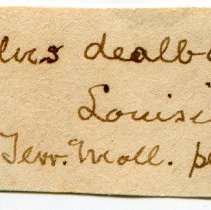 lus dealb
Louisi
Terr. Moll. p